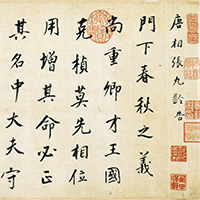 唐相張九齡告
門下春秋之義
尚重卿才王國
克楨莫先相位
用增其命必正
其名中大夫守